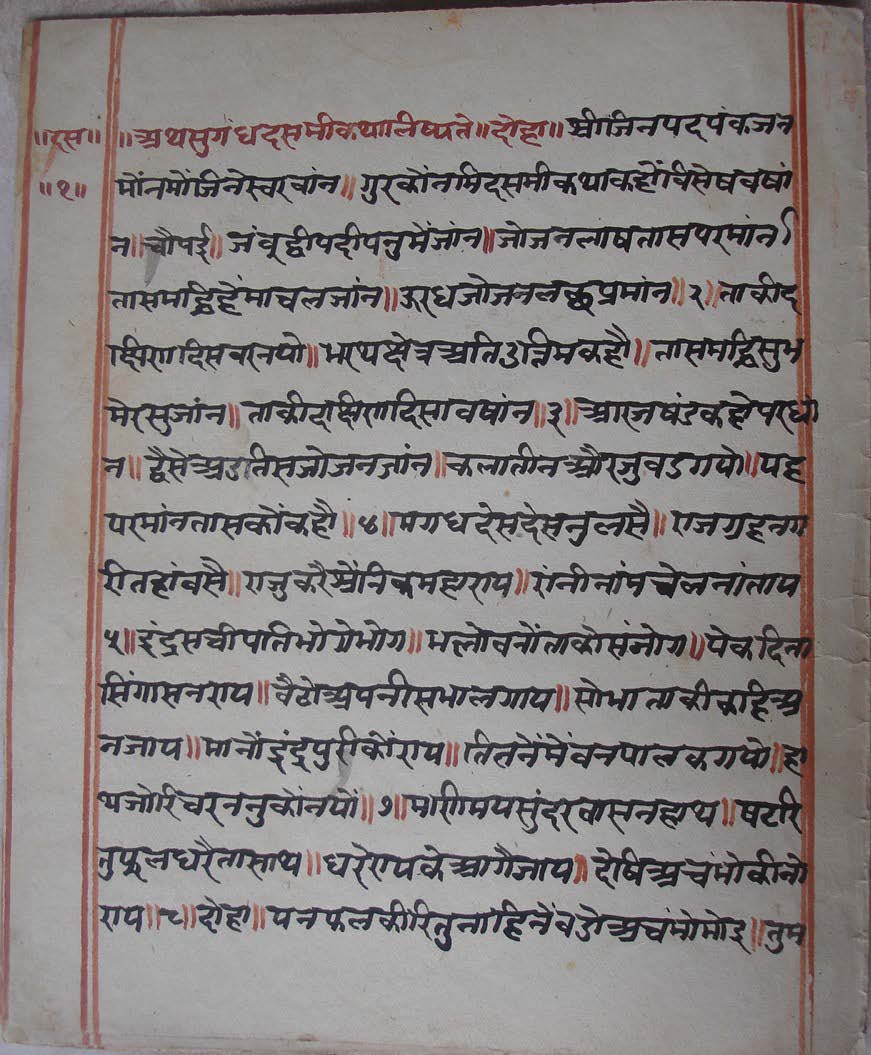 ॥दस॥ ॥अथसुगंधदसमीकथालिष्यते॥दोहा॥श्रीजिनपदपंकजन
॥१॥ मौंनमौंजिनेस्वरवांन॥गुरकौंनमिदसमीकथाकहौंविसेषवषां
न॥चौपई॥जंबूद्वीपदीपनुमैंजांन॥जोजनलाषतासपरमांन।
तासमाझिहैंमाचलजांन॥ऊरधजोजनलछप्रमांन॥२॥ताकीद
क्षिणदिसवरनयो॥भरथक्षेत्रअतिउत्तिमकहौ॥तासमाझिसुभ
मेरसुजांन॥ताकीदाक्षिणदिसावषांन॥३॥आरजषंडकहोपरधां
न॥द्वैसेअडतिसजोजनजांन॥कलातीनऔरजुवडगयो॥यह
परमांनतासकौंकहौ॥४॥मगधदेसदेसनुलसै॥राजग्रहनग
रीतहांवसै॥राजुकरैश्रैनिकमहाराय॥रांनीनांमचेलनांताय
५॥इंद्रसचीपतिभोगेभोग॥भलोवनौंताकोसंजोग॥येकदिना
सिंगासनराय॥वैठोअपनीसभालगाय॥सोभाताकीकहिअ
नजाय॥मानौंइंद्रपुरीकौंराय॥तितनैंमैंवनपालकगयो॥हा
थजोरिचरननुकौंनयौं॥७॥मणिमयसुंदरवासनहाथ॥षटरि
तुफूलधरैतासाथ॥धरेरायकेआगैजाय॥देषिअचंभोकीनो
राय॥८॥दोहा॥पनफलकीरितुनाहिनैंवडोअचंभोमोइ॥तुम